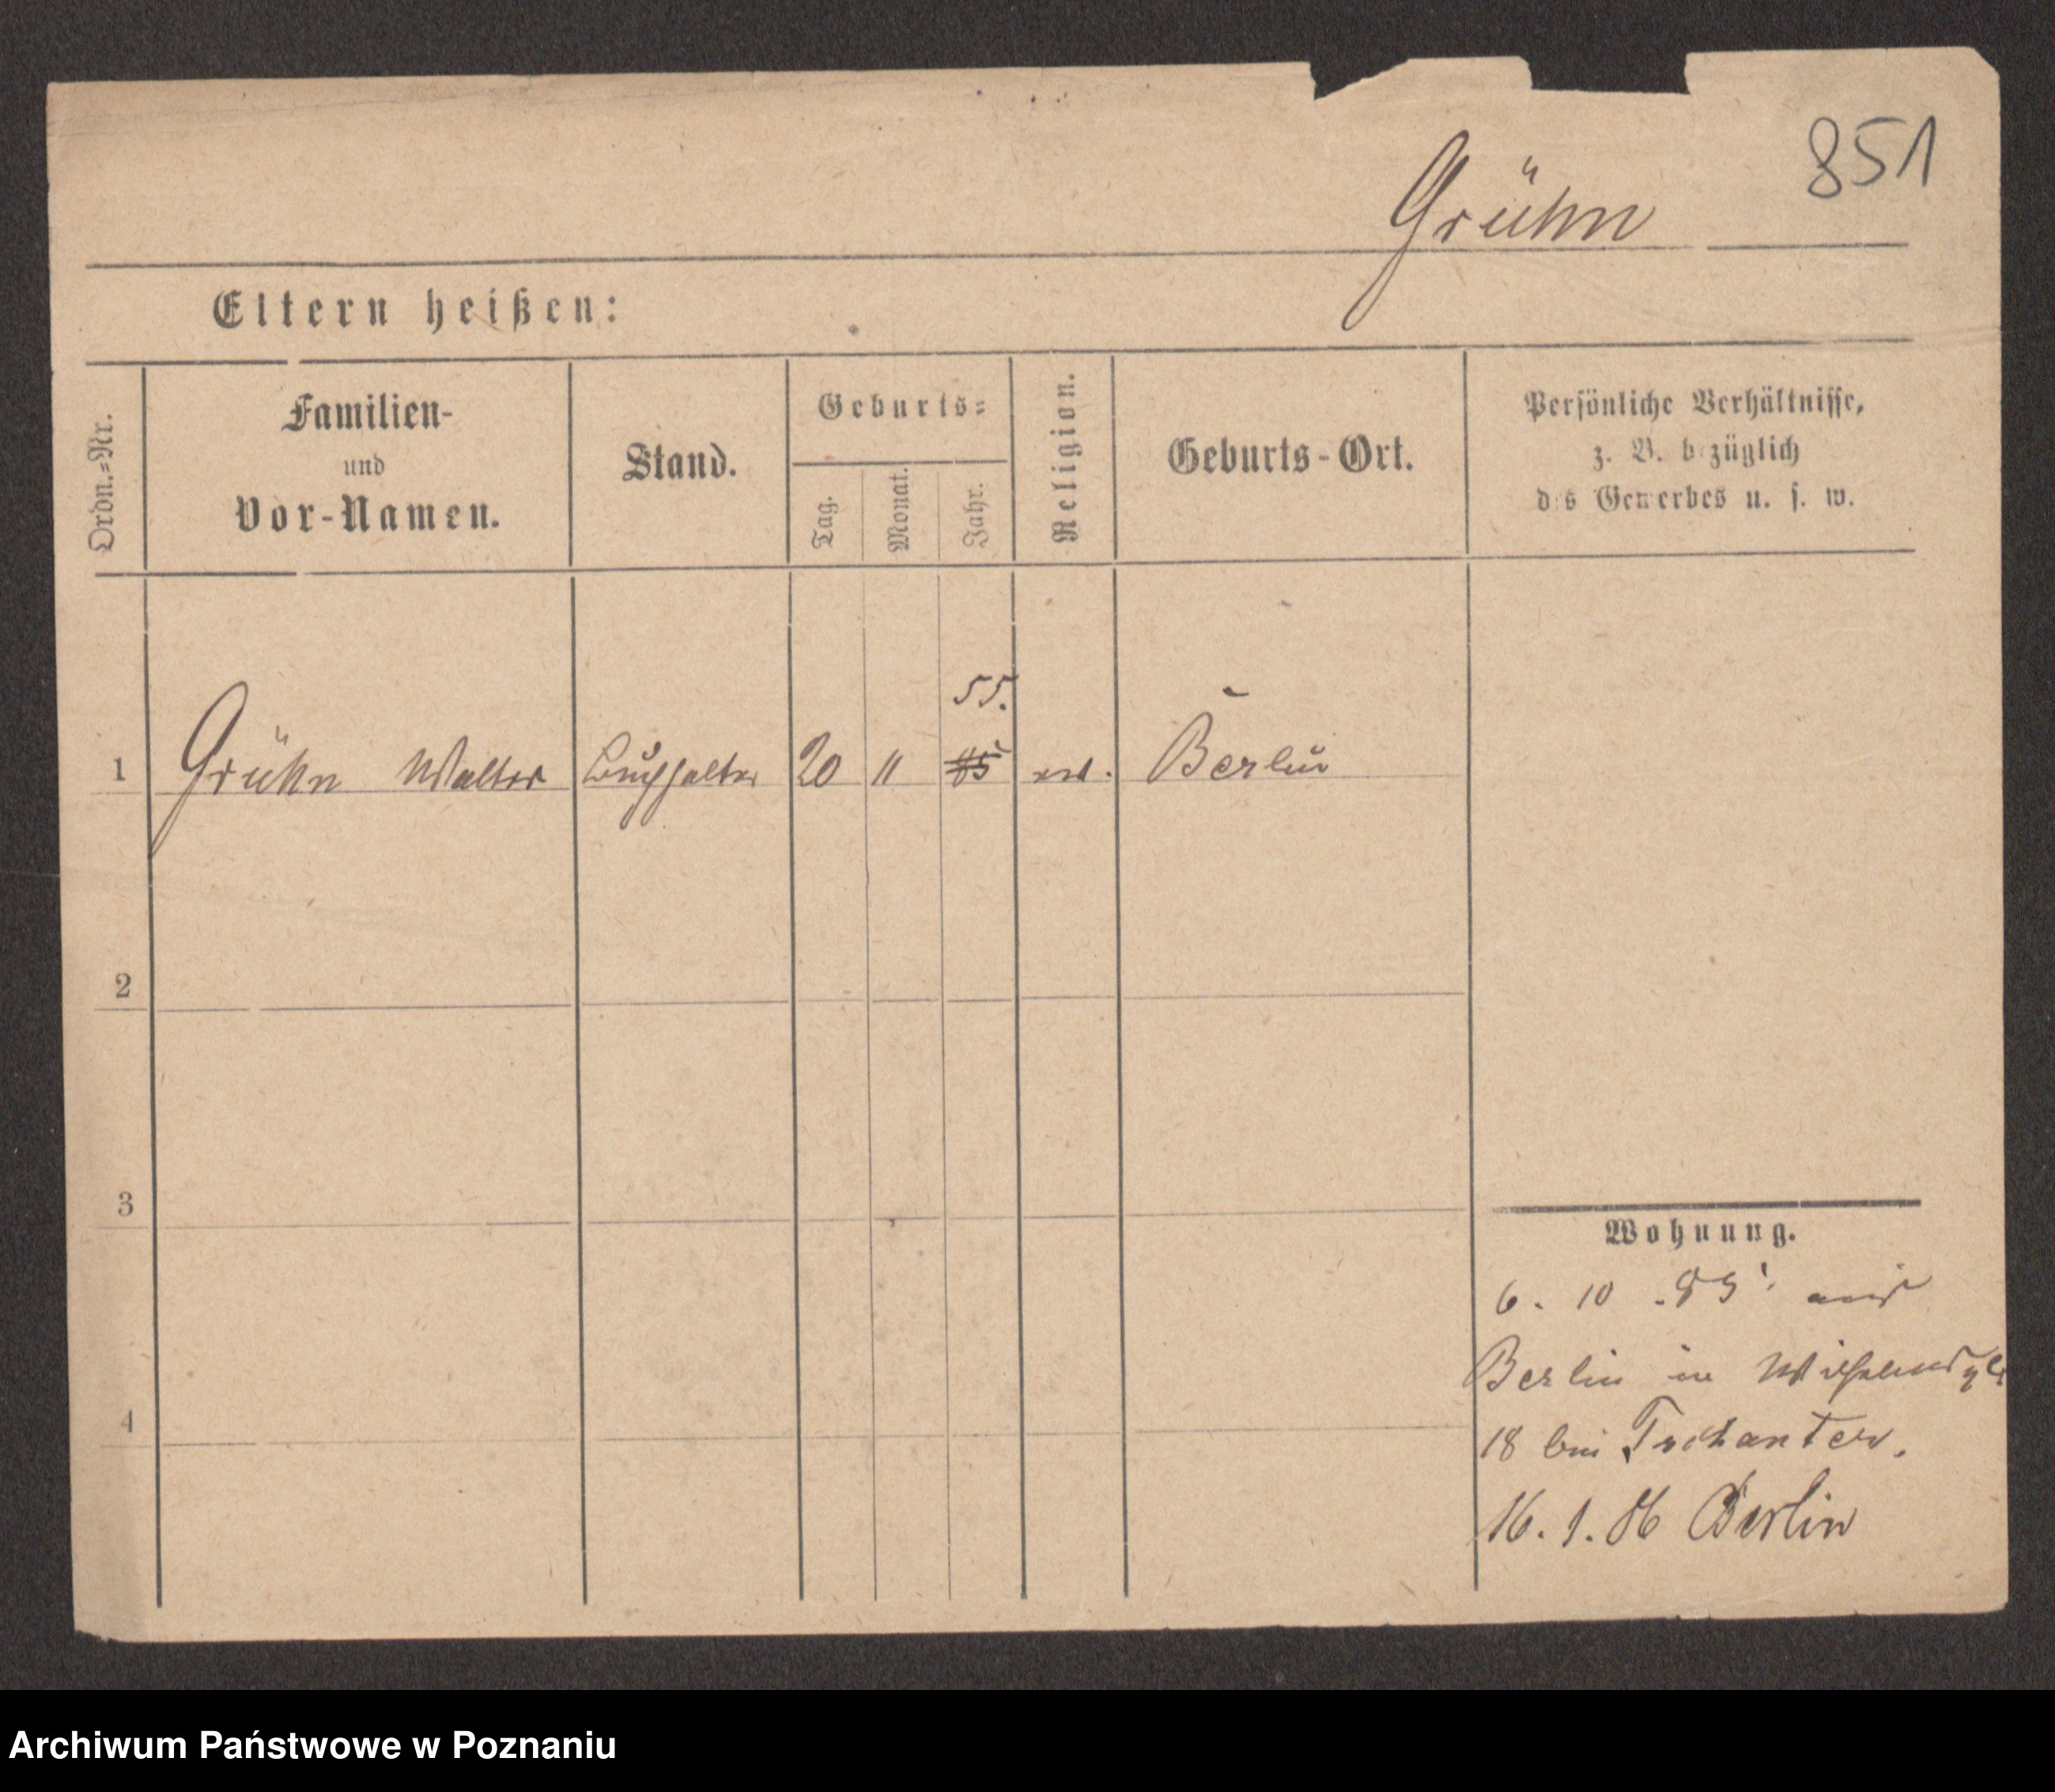 851
Grühn
Eltern heißen:
Ordn.=Nr.
Familien-
und
Vor-Namen.
Stand.
Geburts=
Tag.
Monat.
Jahr.
Religion.
Geburts-Ort.
Persönliche Verhältnisse,
z. B. bezüglich
des Gewerbes u. s. w.
55.
1 Grühn Walter Buchhalter 20 11 85 Berlin
2
3
4
Wohnung.
6. 10 . 85. aus
Berlin in
18 bei
16. 1. 86 Berlin
Archiwum Państwowe w Poznaniu